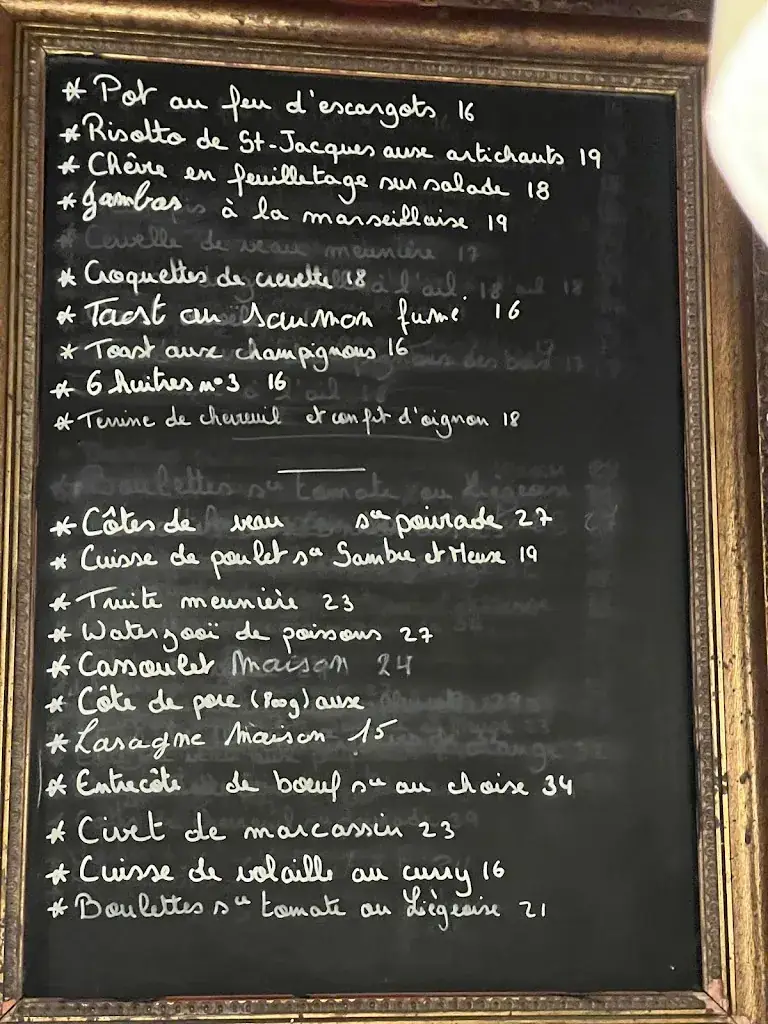 * Pot au feu d'escargots 16
* Risotto de St-Jacques aux artichauts 19
* Chèvre en feuilletage sur salade 18
* Gambas à la marseillaise 19
Cervelle de veau meunière 17
* Croquettes de crevette 18
* Toast au saumon fumé 16
* Toast aux champignons 16
* 6 huitres n°3 16
* Terrine de chevreuil et confit d'oignon 18
Boulettes sce tomate ou Liégeoise
* Côtes de veau sce poivrade 27
* Cuisse de poulet sce Sambre et Meuse 19
* Truite meunière 23
* Waterzooï de poissons 27
* Cassoulet Maison 24
* Côte de porc (800g) aux
* Lasagne Maison 15
* Entrecôte de bœuf sce au choise 34
* Civet de marcassin 23
* Cuisse de volaille au curry 16
* Boulettes sce tomate ou Liègeoise 21